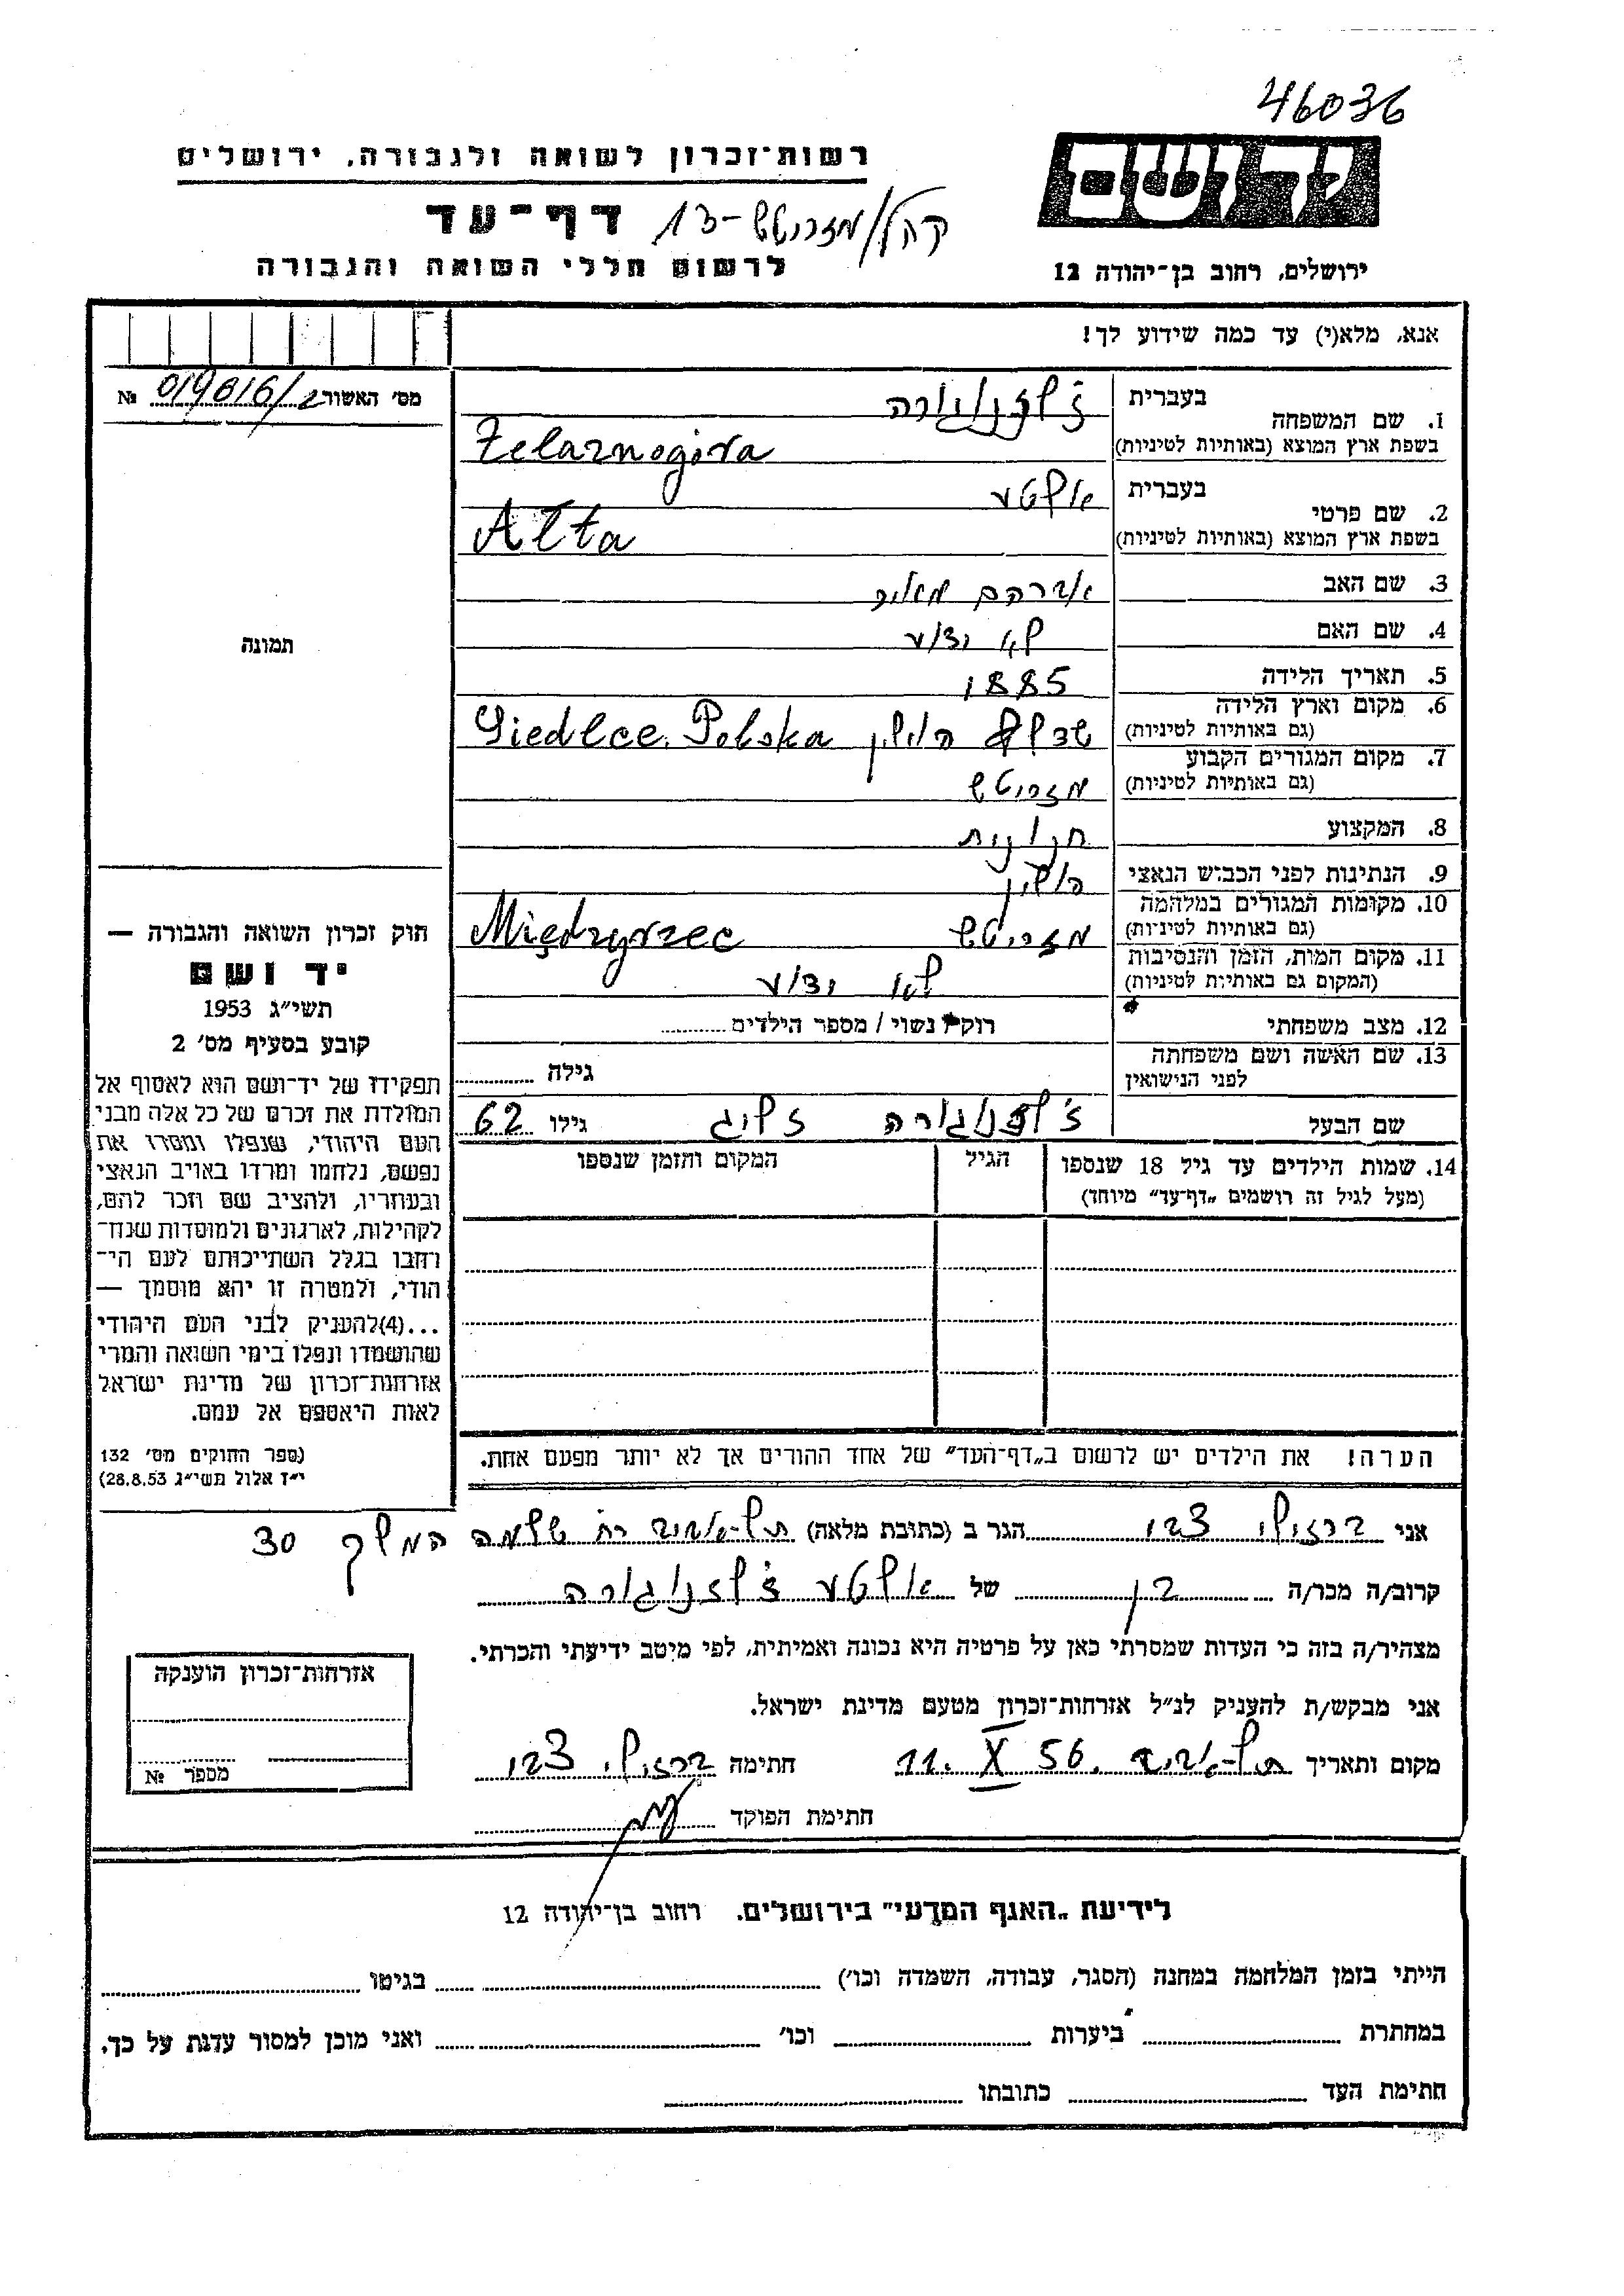 46036
יד ושם
ירושלים, רחוב בן־יהודה 12
רשות־זכרון לשואה ולגבורה, ירושלים
דף־עד
לרשום חללי השואה והגבורה
אנא, מלא(י) עד כמה שידוע לך!
מס׳ האשור 019616/2 №
תמונה
חוק זכרון השואה והגבורה —
יד ושם
תשי״ג 1953
קובע בסעיף מס׳ 2
תפקידו של יד־ושם הוא לאסוף אל
המולדת את זכרם של כל אלה מבני
העם היהודי, שנפלו ומסרו את
נפשם, נלחמו ומרדו באויב הנאצי
ובעוזריו, ולהציב שם וזכר להם,
לקהילות, לארגונים ולמוסדות שנח־
רחבו בגלל השתייכותם לעם הי־
הודי, ולמטרה זו יהא מוסמך —
...(4)להעניק לבני העם היהודי
שהושמדו ונפלו בימי השואה והמרי
אזרחות־זכרון של מדינת ישראל
לאות היאספם אל עמם.
(ספר החוקים מס׳ 132
י״ז אלול תשי״ג 28.8.53)
בעברית ז׳לזנוגורה
1. שם המשפחה
בשפת ארץ המוצא (באותיות לטיניות) Żelaznogóra
בעברית אלטע
2. שם פרטי
בשפת ארץ המוצא (באותיות לטיניות) Alta
3. שם האב אברהם מאיר
4. שם האם לא ידוע
5. תאריך הלידה 1885
6. מקום וארץ הלידה
(גם באותיות לטיניות) שדלץ פולין Siedlce. Polska
7. מקום המגורים הקבוע
(גם באותיות לטיניות) מזריטש
8. המקצוע חנונית
9. הנתינות לפני הכבוש הנאצי פולין
10. מקומות המגורים במלחמה
(גם באותיות לטיניות) מזריטש Międzyrzec
11. מקום המות, הזמן והנסיבות
(המקום גם באותיות לטיניות) לא ידוע
12. מצב משפחתי רוק/ נשוי / מספר הילדים
13. שם האשה ושם משפחתה
לפני הנישואין גילה
שם הבעל ז׳לזנוגורה זליג גילו 62
14. שמות הילדים עד גיל 18 שנספו הגיל המקום והזמן שנספו
(מעל לגיל זה רושמים „דף־עד״ מיוחד)
הערה! את הילדים יש לרשום ב„דף־העד״ של אחד ההורים אך לא יותר מפעם אחת.
אני ברזילי צבי הגר ב (כתובת מלאה) תל־אביב רח׳ שלמה המלך 30
קרוב/ה מכר/ה בן של אלטע ז׳לזנוגורה
מצהיר/ה בזה כי העדות שמסרתי כאן על פרטיה היא נכונה ואמיתית, לפי מיטב ידיעתי והכרתי.
אני מבקש/ת להעניק לנ״ל אזרחות־זכרון מטעם מדינת ישראל.
מקום ותאריך תל־אביב 11. X 56. חתימה ברזילי צבי
חתימת הפוקד
אזרחות־זכרון הוענקה
מספר №
לידיעת „האגף המדעי״ בירושלים. רחוב בן־יהודה 12
הייתי בזמן המלחמה במחנה (הסגר, עבודה, השמדה וכו׳) בגיטו
במחתרת ביערות וכו׳ ואני מוכן למסור עדות על כך.
חתימת העד כתובתו